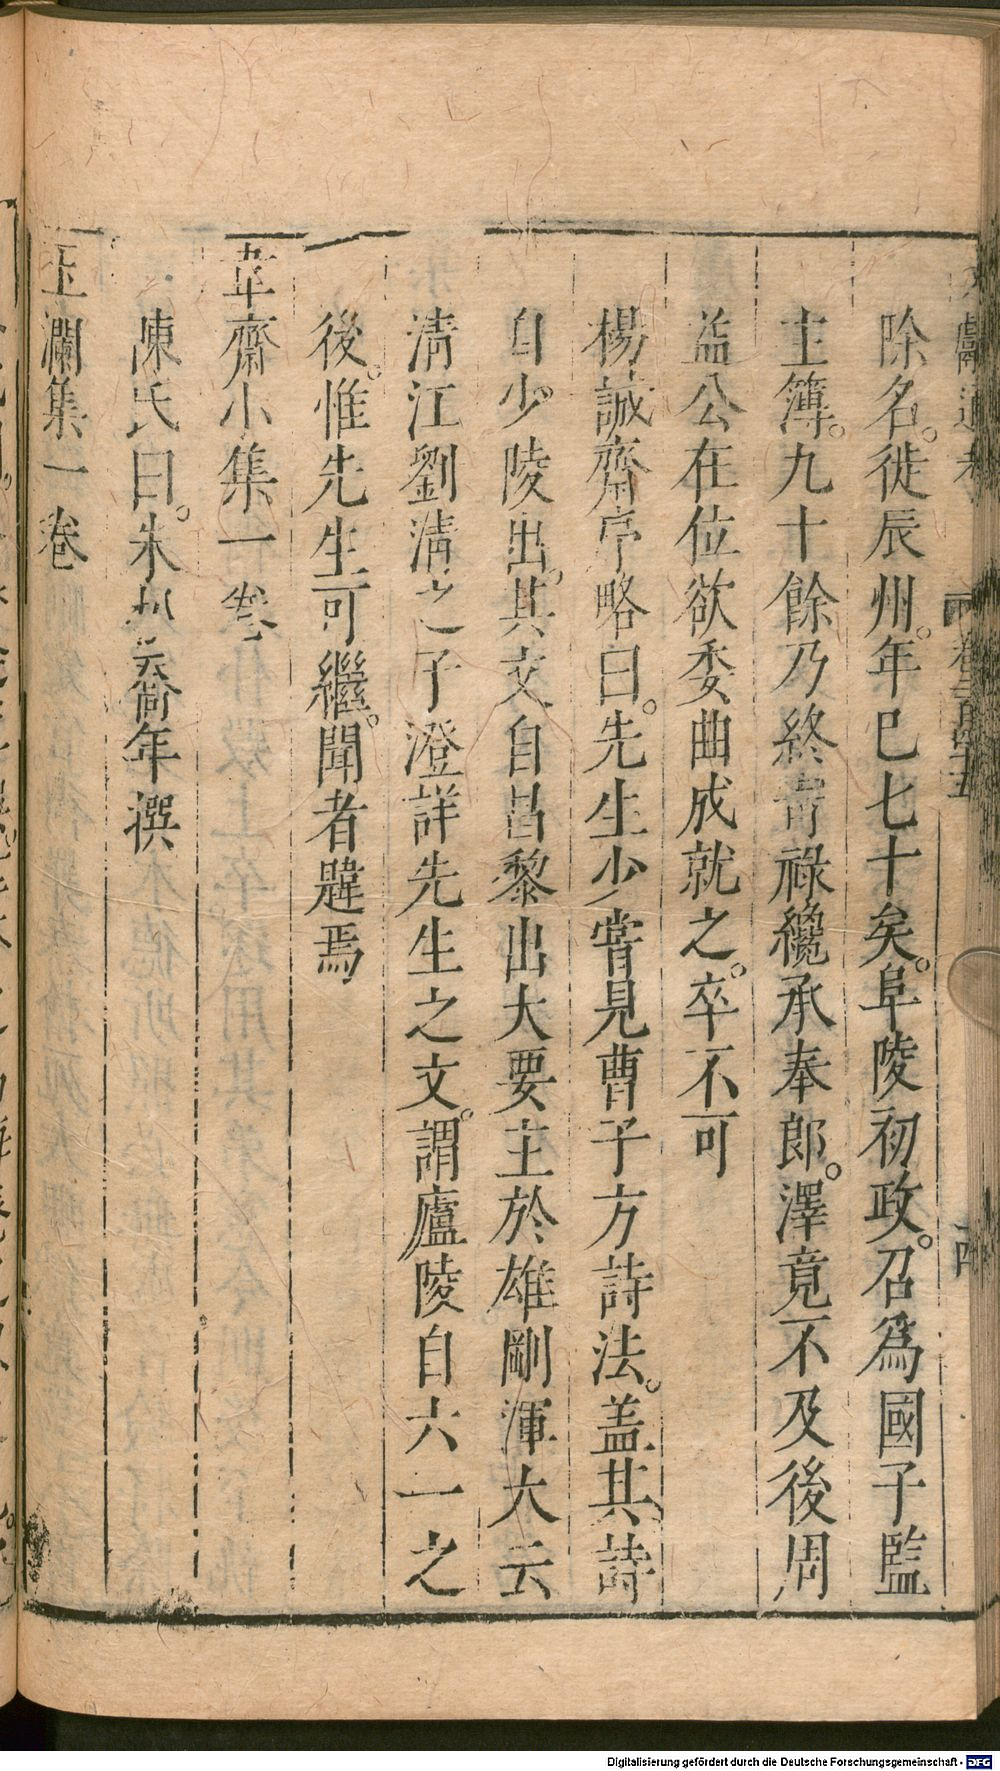 文獻通考
卷二百四十五
十四
除名。徙辰州。年巳七十矣。阜陵初政。召爲國子監
主簿。九十餘乃終。官祿纔承奉郎。澤竟不及後周
益公在位欲委曲成就之。卒不可
楊誠齋序略曰。先生少嘗見曹子方詩法。盖其詩
自少陵出。其文自昌黎出大要主於雄剛渾大云
淸江劉淸之子澄詳先生之文。謂廬陵自六一之
後。惟先生可繼。聞者韙焉
韋齋小集一卷
陳氏曰。朱松喬年撰
玉瀾集一卷
Digitalisierung gefördert durch die Deutsche Forschungsgemeinschaft - DFG